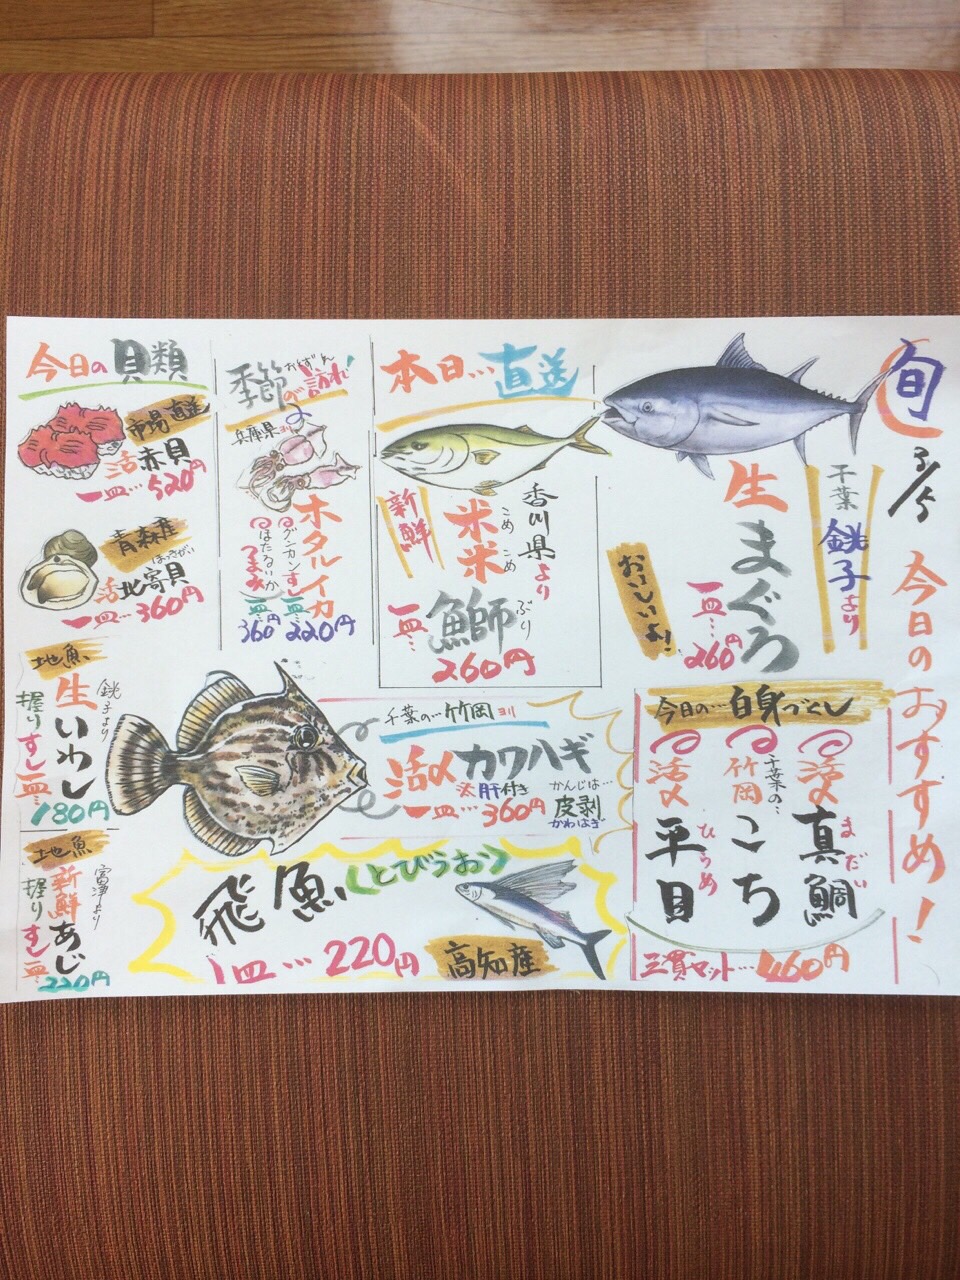 旬
3/5
今日のおすすめ！
千葉
銚子より
生
まぐろ
一皿…260円
おいしいよ！
今日の…白身づくし
活〆
真鯛
まだい
千葉の…
竹岡
こち
活〆
平目
ひらめ
三貫セット…460円
本日…直送
香川県より
米米
こめ こめ
鰤
ぶり
新鮮
一皿…
260円
季節の訪れ
兵庫県ヨリ
ホタルイカ
グンカンすし
一皿…220円
ほたるいか
一皿…360円
今日の貝類
市場直送
活赤貝
一皿…520円
青森産
ほっきがい
活北寄貝
一皿…360円
地魚
銚子より
生いわし
握りすし一皿…
180円
地魚
富津より
新鮮あじ
握りすし一皿…
220円
千葉の…竹岡ヨリ
活〆カワハギ
肝付き
一皿…360円
かんじは…
皮剥
かわはぎ
飛魚
(とびうお)
1皿…220円
高知産